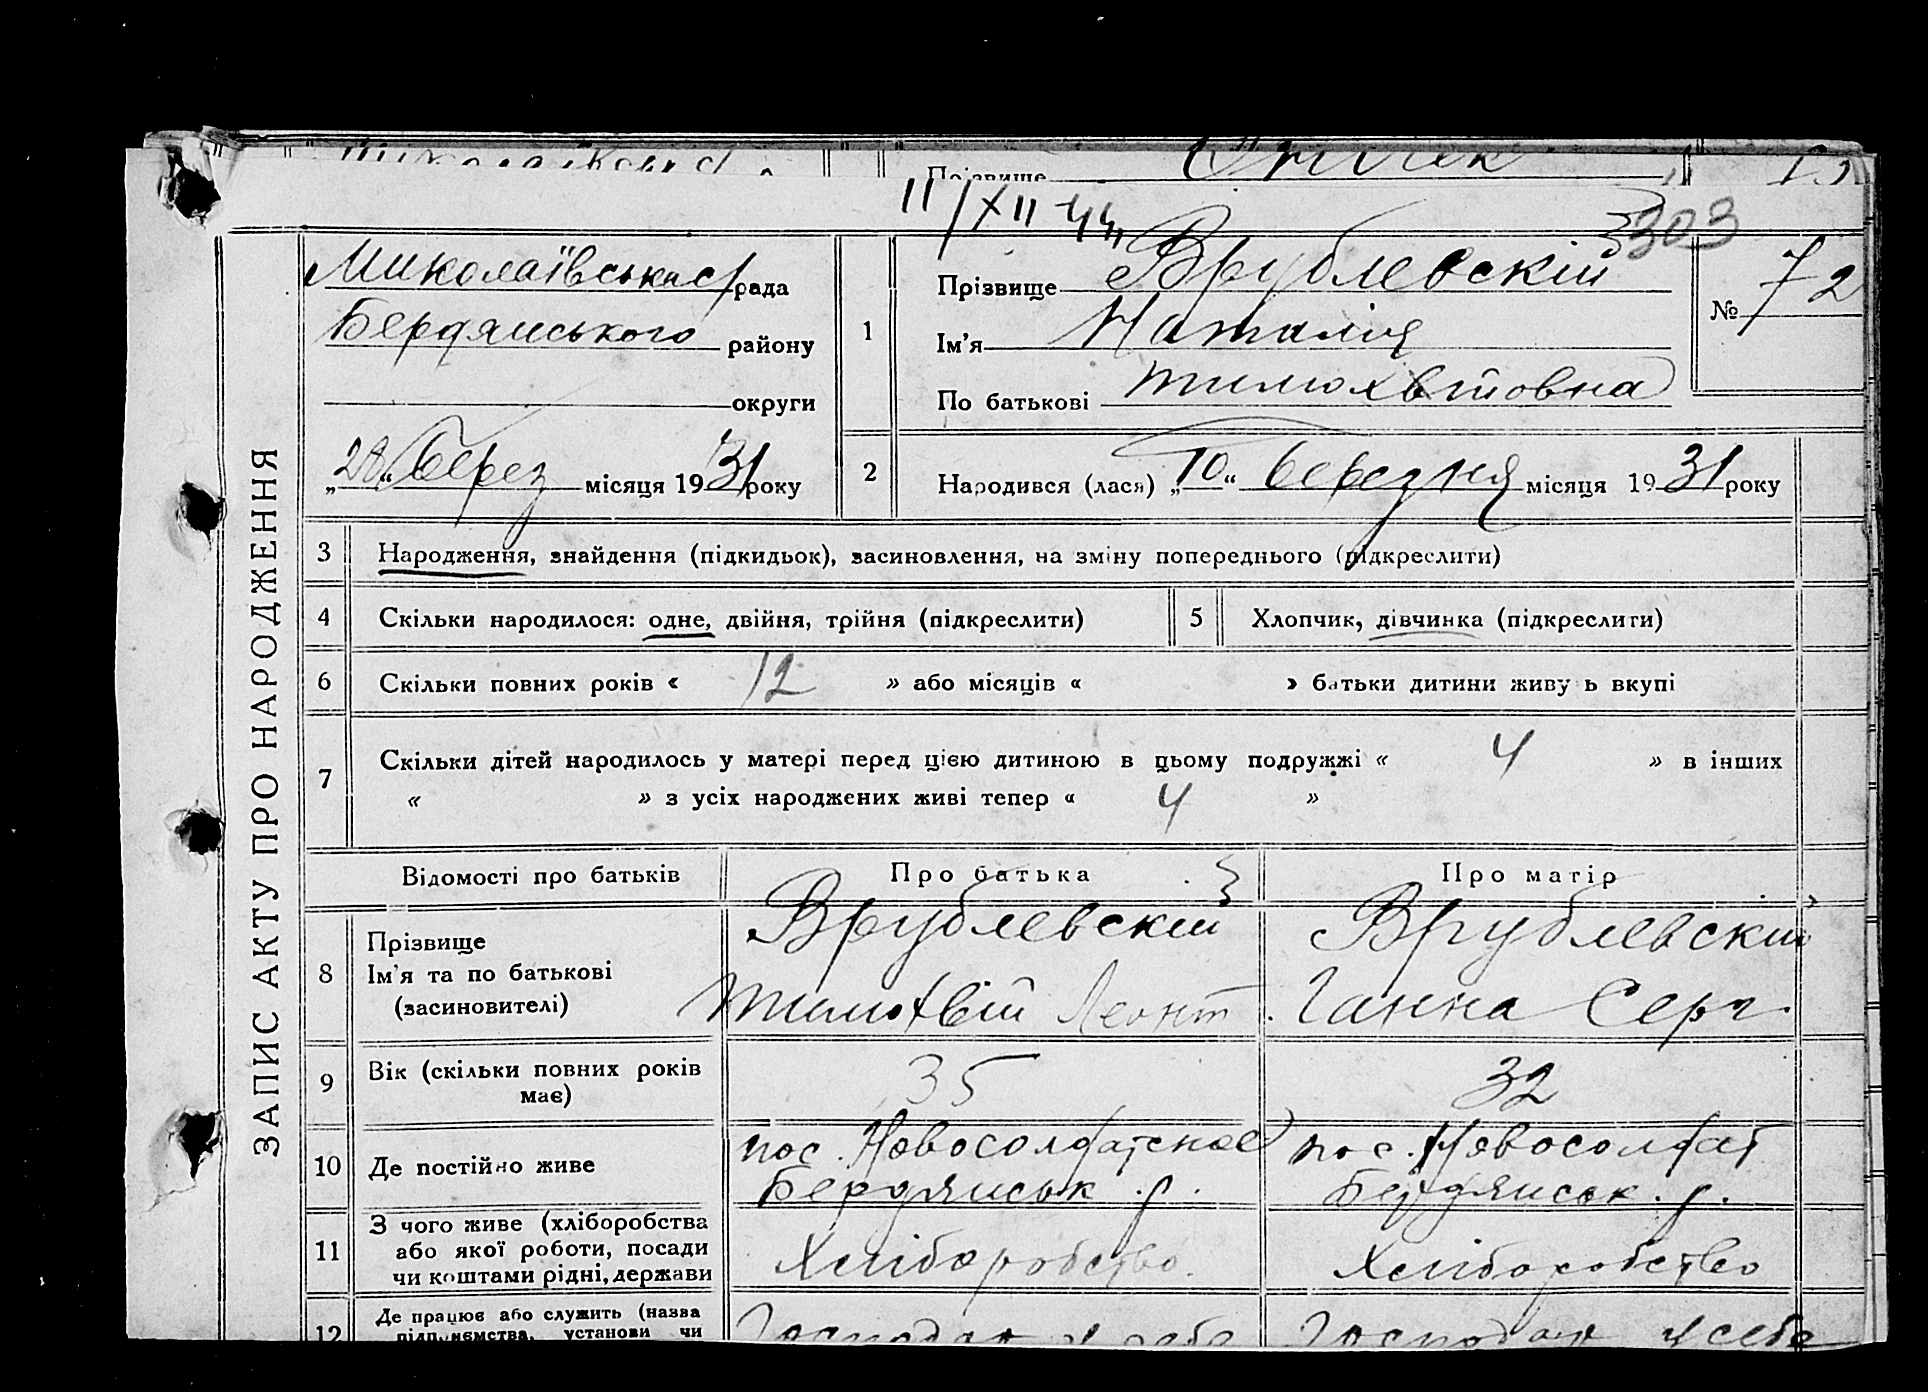 Прізвище
11/XII 44
303
Миколаївська с/рада
Бердянського району
округи
„28“ берез місяця 1931 року
1
Прізвище Врублевскій
Ім'я Наталія
По батькові Тимохвіювна
№ 72
2
Народився (лася) „10“ березня місяця 1931 року
ЗАПИС АКТУ ПРО НАРОДЖЕННЯ
3 Народження, знайдення (підкидьок), засиновлення, на зміну попереднього (підкреслити)
4 Скільки народилося: одне, двійня, трійня (підкреслити)
5 Хлопчик, дівчинка (підкреслити)
6 Скільки повних років « 12 » або місяців « » батьки дитини живуть вкупі
7 Скільки дітей народилось у матері перед цією дитиною в цьому подружжі « 4 » в інших
« » з усіх народжених живі тепер « 4 »
Відомості про батьків
Про батька
Про матір
8
Прізвище
Ім'я та по батькові
(засиновителі)
Врублевскій
Тимохвій Леонт.
Врублевский
Ганна Серг.
9
Вік (скільки повних років
має)
35
32
10 Де постійно живе
пос. Новосолдатское
Бердянськ. р.
пос. Новосолдат
Бердянськ. р.
11
З чого живе (хліборобства
або якої роботи, посади
чи коштами рідні, держави
Хліборобство.
Хліборобство
12
Де працює або служить (назва
підприємства, установи чи
Господар у себе
Господар у себе